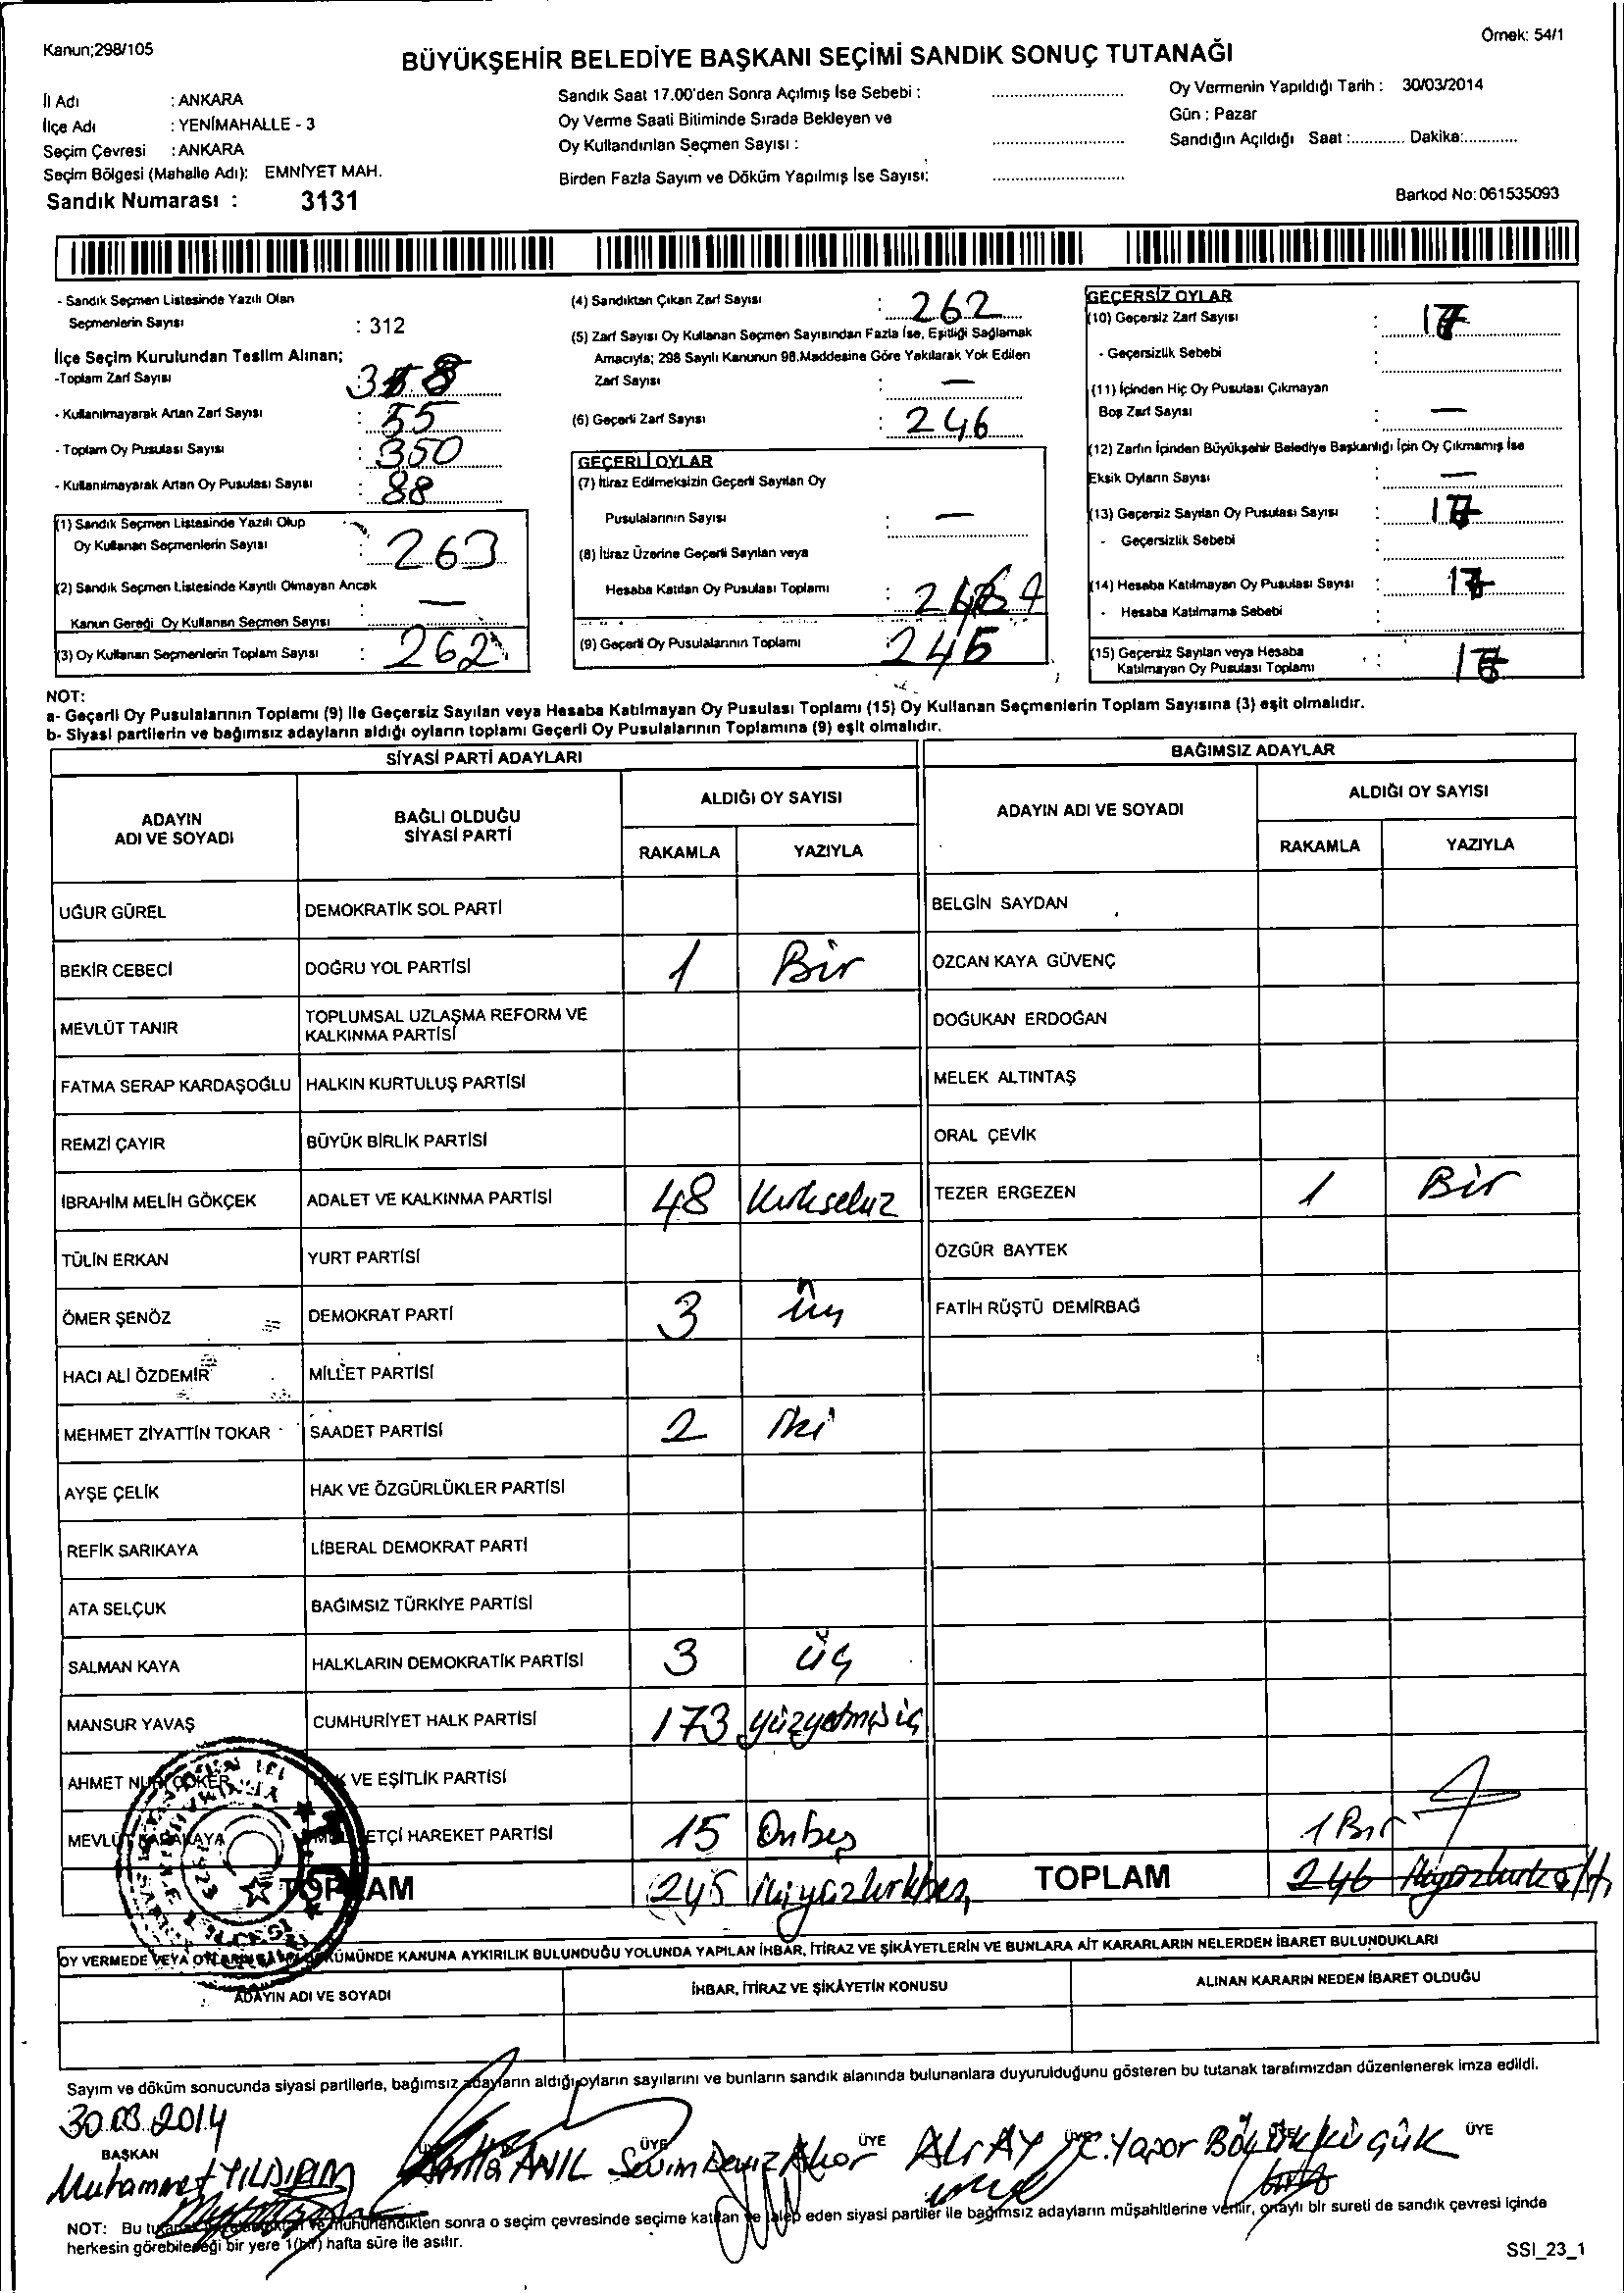 Kanun;298/105
Örnek: 54/1
BÜYÜKŞEHİR BELEDİYE BAŞKANI SEÇİMİ SANDIK SONUÇ TUTANAĞI
İl Adı : ANKARA
İlçe Adı : YENİMAHALLE - 3
Seçim Çevresi : ANKARA
Seçim Bölgesi (Mahalle Adı): EMNİYET MAH.
Sandık Numarası : 3131
Sandık Saat 17.00'den Sonra Açılmış İse Sebebi :
Oy Verme Saati Bitiminde Sırada Bekleyen ve
Oy Kullandırılan Seçmen Sayısı :
Birden Fazla Sayım ve Döküm Yapılmış İse Sayısı:
Oy Vermenin Yapıldığı Tarih : 30/03/2014
Gün : Pazar
Sandığın Açıldığı Saat :............ Dakika:............
Barkod No: 061535093
- Sandık Seçmen Listesinde Yazılı Olan
Seçmenlerin Sayısı : 312
İlçe Seçim Kurulundan Teslim Alınan;
-Toplam Zarf Sayısı
- Kullanılmayarak Artan Zarf Sayısı : 55
- Toplam Oy Pusulası Sayısı : 350
- Kullanılmayarak Artan Oy Pusulası Sayısı : 88
(1) Sandık Seçmen Listesinde Yazılı Olup
Oy Kullanan Seçmenlerin Sayısı : 263
(2) Sandık Seçmen Listesinde Kayıtlı Olmayan Ancak
Kanun Gereği Oy Kullanan Seçmen Sayısı : —
(3) Oy Kullanan Seçmenlerin Toplam Sayısı : 262
(4) Sandıktan Çıkan Zarf Sayısı : 262
(5) Zarf Sayısı Oy Kullanan Seçmen Sayısından Fazla İse, Eşitliği Sağlamak
Amacıyla; 298 Sayılı Kanunun 98.Maddesine Göre Yakılarak Yok Edilen
Zarf Sayısı : —
(6) Geçerli Zarf Sayısı : 246
GEÇERLİ OYLAR
(7) İtiraz Edilmeksizin Geçerli Sayılan Oy
Pusulalarının Sayısı : —
(8) İtiraz Üzerine Geçerli Sayılan veya
Hesaba Katılan Oy Pusulası Toplamı :
(9) Geçerli Oy Pusulalarının Toplamı 245
GEÇERSİZ OYLAR
(10) Geçersiz Zarf Sayısı : 17
- Geçersizlik Sebebi :
(11) İçinden Hiç Oy Pusulası Çıkmayan
Boş Zarf Sayısı : —
(12) Zarfın İçinden Büyükşehir Belediye Başkanlığı İçin Oy Çıkmamış İse
Eksik Oyların Sayısı : —
(13) Geçersiz Sayılan Oy Pusulası Sayısı : 17
- Geçersizlik Sebebi :
(14) Hesaba Katılmayan Oy Pusulası Sayısı : 17
- Hesaba Katılmama Sebebi :
(15) Geçersiz Sayılan veya Hesaba
Katılmayan Oy Pusulası Toplamı :
NOT:
a- Geçerli Oy Pusulalarının Toplamı (9) ile Geçersiz Sayılan veya Hesaba Katılmayan Oy Pusulası Toplamı (15) Oy Kullanan Seçmenlerin Toplam Sayısına (3) eşit olmalıdır.
b- Siyasi partilerin ve bağımsız adayların aldığı oyların toplamı Geçerli Oy Pusulalarının Toplamına (9) eşit olmalıdır.
SİYASİ PARTİ ADAYLARI
BAĞIMSIZ ADAYLAR
ADAYIN
ADI VE SOYADI
BAĞLI OLDUĞU
SİYASİ PARTİ
ALDIĞI OY SAYISI
RAKAMLA YAZIYLA
ADAYIN ADI VE SOYADI
ALDIĞI OY SAYISI
RAKAMLA YAZIYLA
UĞUR GÜREL DEMOKRATİK SOL PARTİ BELGİN SAYDAN
BEKİR CEBECİ DOĞRU YOL PARTİSİ 1 Bir ÖZCAN KAYA GÜVENÇ
MEVLÜT TANIR TOPLUMSAL UZLAŞMA REFORM VE
KALKINMA PARTİSİ DOĞUKAN ERDOĞAN
FATMA SERAP KARDAŞOĞLU HALKIN KURTULUŞ PARTİSİ MELEK ALTINTAŞ
REMZİ ÇAYIR BÜYÜK BİRLİK PARTİSİ ORAL ÇEVİK
İBRAHİM MELİH GÖKÇEK ADALET VE KALKINMA PARTİSİ 48 Kırksekiz TEZER ERGEZEN 1 Bir
TÜLİN ERKAN YURT PARTİSİ ÖZGÜR BAYTEK
ÖMER ŞENÖZ DEMOKRAT PARTİ 3 üç FATİH RÜŞTÜ DEMİRBAĞ
HACI ALİ ÖZDEMİR MİLLET PARTİSİ
MEHMET ZİYATTİN TOKAR SAADET PARTİSİ 2 İki
AYŞE ÇELİK HAK VE ÖZGÜRLÜKLER PARTİSİ
REFİK SARIKAYA LİBERAL DEMOKRAT PARTİ
ATA SELÇUK BAĞIMSIZ TÜRKİYE PARTİSİ
SALMAN KAYA HALKLARIN DEMOKRATİK PARTİSİ 3 üç
MANSUR YAVAŞ CUMHURİYET HALK PARTİSİ 173 yüzyetmişüç
AHMET VE EŞİTLİK PARTİSİ
MEVLÜT KARAKAYA HAREKET PARTİSİ 15 Onbeş 1 Bir
TOPLAM 245 ikiyüzkırkbeş TOPLAM 246 ikiyüzkırkaltı
OY VERMEDE VEYA KANUNA AYKIRILIK BULUNDUĞU YOLUNDA YAPILAN İHBAR, İTİRAZ VE ŞİKÂYETLERİN VE BUNLARA AİT KARARLARIN NELERDEN İBARET BULUNDUKLARI
ADAYIN ADI VE SOYADI İHBAR, İTİRAZ VE ŞİKÂYETİN KONUSU ALINAN KARARIN NEDEN İBARET OLDUĞU
Sayım ve döküm sonucunda siyasi partilerle, bağımsız adayların aldığı oyların sayılarını ve bunların sandık alanında bulunanlara duyurulduğunu gösteren bu tutanak tarafımızdan düzenlenerek imza edildi.
30.03.2014
BAŞKAN ÜYE ÜYE ÜYE ÜYE
Muhammet YILDIRIM ANIL Sevim Deniz
NOT: Bu sonra o seçim çevresinde seçime katılan ve talep eden siyasi partiler ile bağımsız adayların müşahitlerine verilir, onaylı bir sureti de sandık çevresi içinde
herkesin görebileceği bir yere 1(bir) hafta süre ile asılır.
SSI_23_1